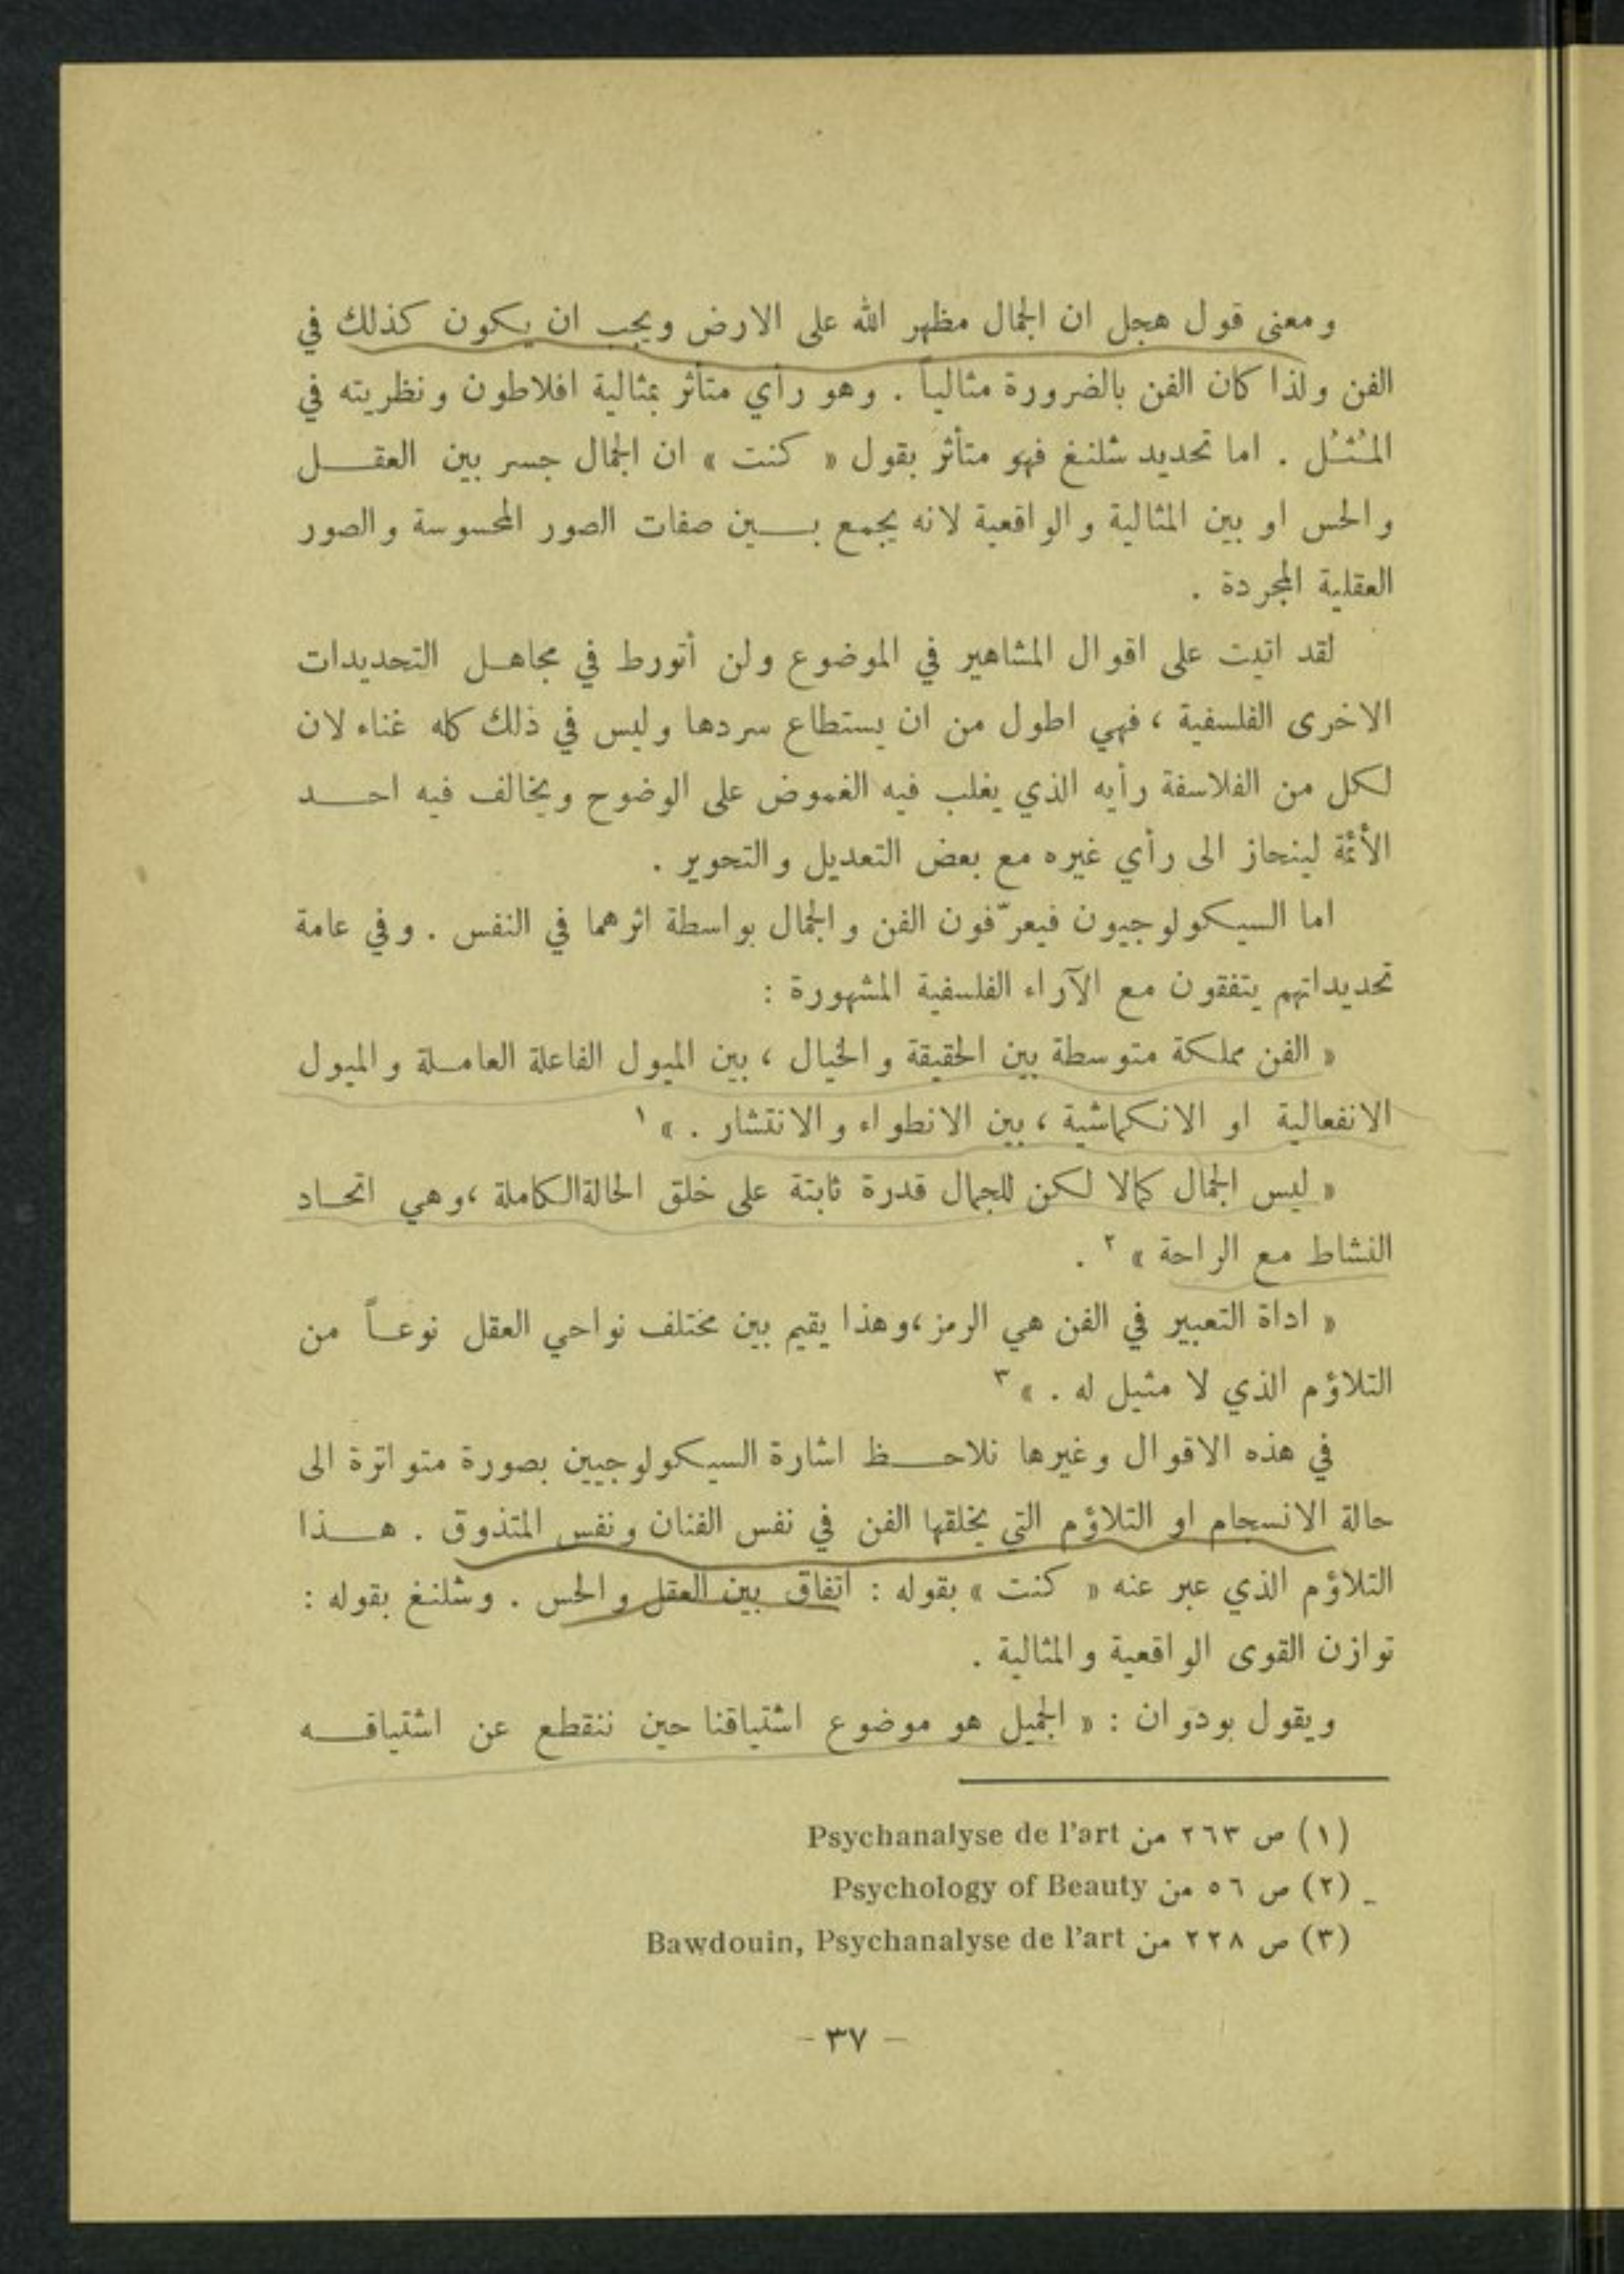 ومعنى قول هجل ان الجمال مظهر الله على الارض ويجب ان يكون كذلك في
الفن ولذا كان الفن بالضرورة مثالياً . وهو رأي متأثر بمثالية افلاطون ونظريته في
المُثُل . اما تحديد شلنغ فهو متأثر بقول « كنت » ان الجمال جسر بين العقل
والحس او بين المثالية والواقعية لانه يجمع بين صفات الصور المحسوسة والصور
العقلية المجردة .
لقد اتيت على اقوال المشاهير في الموضوع ولن أتورط في مجاهل التحديدات
الاخرى الفلسفية ، فهي اطول من ان يستطاع سردها وليس في ذلك كله غناء لان
لكل من الفلاسفة رأيه الذي يغلب فيه الغموض على الوضوح ويخالف فيه احد
الأئمة لينحاز الى رأي غيره مع بعض التعديل والتحوير .
اما السيكولوجيون فيعرّفون الفن والجمال بواسطة اثرهما في النفس . وفي عامة
تحديداتهم يتفقون مع الآراء الفلسفية المشهورة :
« الفن مملكة متوسطة بين الحقيقة والخيال ، بين الميول الفاعلة العاملة والميول
الانفعالية او الانكماشية ، بين الانطواء والانتشار . » ١
« ليس الجمال كمالا لكن للجمال قدرة ثابتة على خلق الحالة الكاملة ، وهي اتحاد
النشاط مع الراحة » ٢ .
« اداة التعبير في الفن هي الرمز ، وهذا يقيم بين مختلف نواحي العقل نوعاً من
التلاؤم الذي لا مثيل له . » ٣
في هذه الاقوال وغيرها نلاحظ اشارة السيكولوجيين بصورة متواترة الى
حالة الانسجام او التلاؤم التي يخلقها الفن في نفس الفنان ونفس المتذوق . هذا
التلاؤم الذي عبر عنه « كنت » بقوله : اتفاق بين العقل والحس . وشلنغ بقوله :
توازن القوى الواقعية والمثالية .
ويقول بودوان : « الجميل هو موضوع اشتياقنا حين ننقطع عن اشتياقه
(١) ص ٢٦٣ من Psychanalyse de l'art
(٢) ص ٥٦ من Psychology of Beauty
(٣) ص ٢٢٨ من Bawdouin, Psychanalyse de l'art
- ٣٧ -